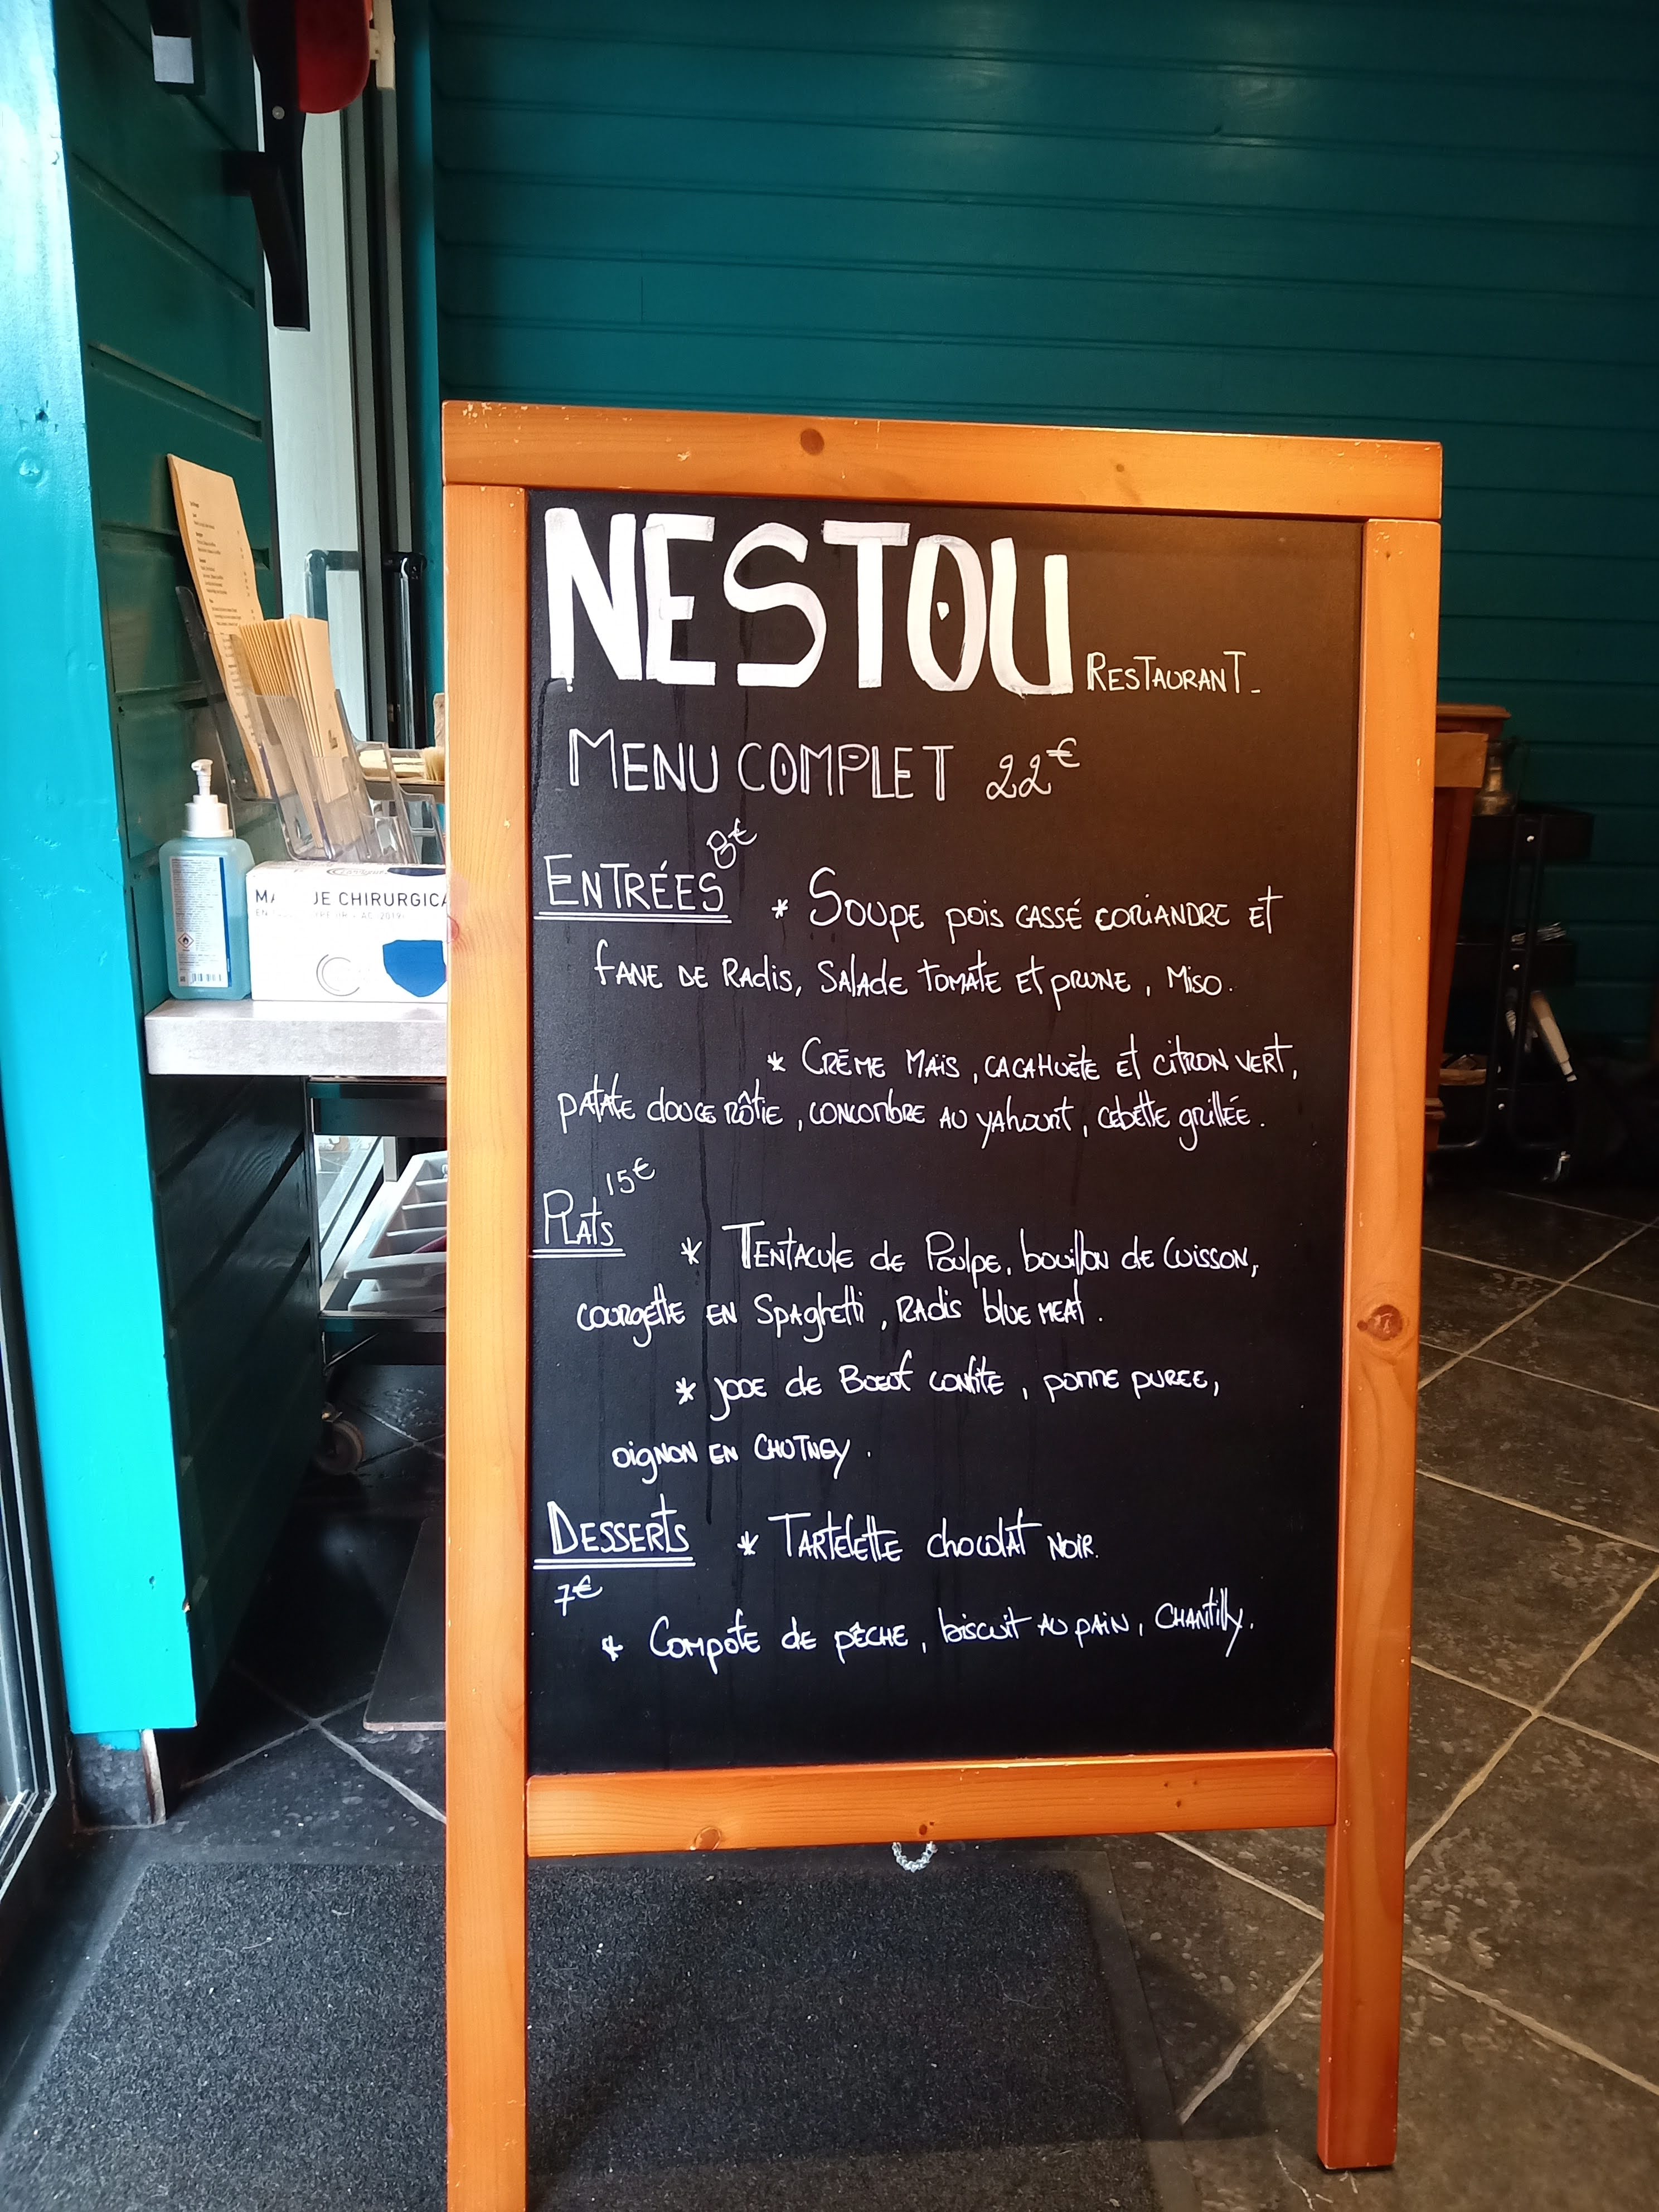 NESTOU RESTAURANT_
MENU COMPLET 22€
ENTRÉES 8€
* SOUPE pois CASSÉ CORIANDRE ET
fANE DE RAdis, SAlAdE TOMATE ET pRUNE, Miso.
* CRÈME MAïs, CACAHUÈTE ET CiTRON VERT,
pATATE doucE RôtiE, CONCOMBRE AU yAhourt, CEbETTE gRilléE.
PlATS 15€
* TENTACUlE dE PoulpE, bouillon dE CUiSSON,
COURgETTE EN SpAghETTi, RAdis bluE MEAT.
* joue dE BOEuf CONfiTE, POMME PUREE,
oigNON EN CHUTNEY.
DESSERTS 7€
* TARTElETTE chocolAT NOiR.
* COMPOTE dE pêCHE, biscuit AU PAiN, CHANTilly.
MA UE CHIRURGICA